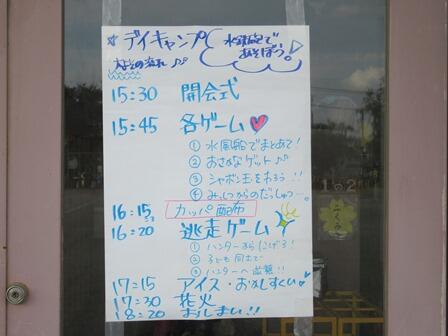 デイキャンプ
水鉄砲で
あそぼう♪
大まかな流れ ♪♪
15:30 開会式
15:45 各ゲーム
① 水風船でまとあて!
② おさかなゲット♪♪
③ シャボン玉をわろう!!
④ みっしつからのだっしゅつ…
16:15 カッパ配布
16:20 逃走ゲーム
① ハンターからにげろ!
② 子ども同士で
③ ハンターへ逆襲!!
17:15 アイス・おかしすくい
17:30 花火
18:20 おしまい!!